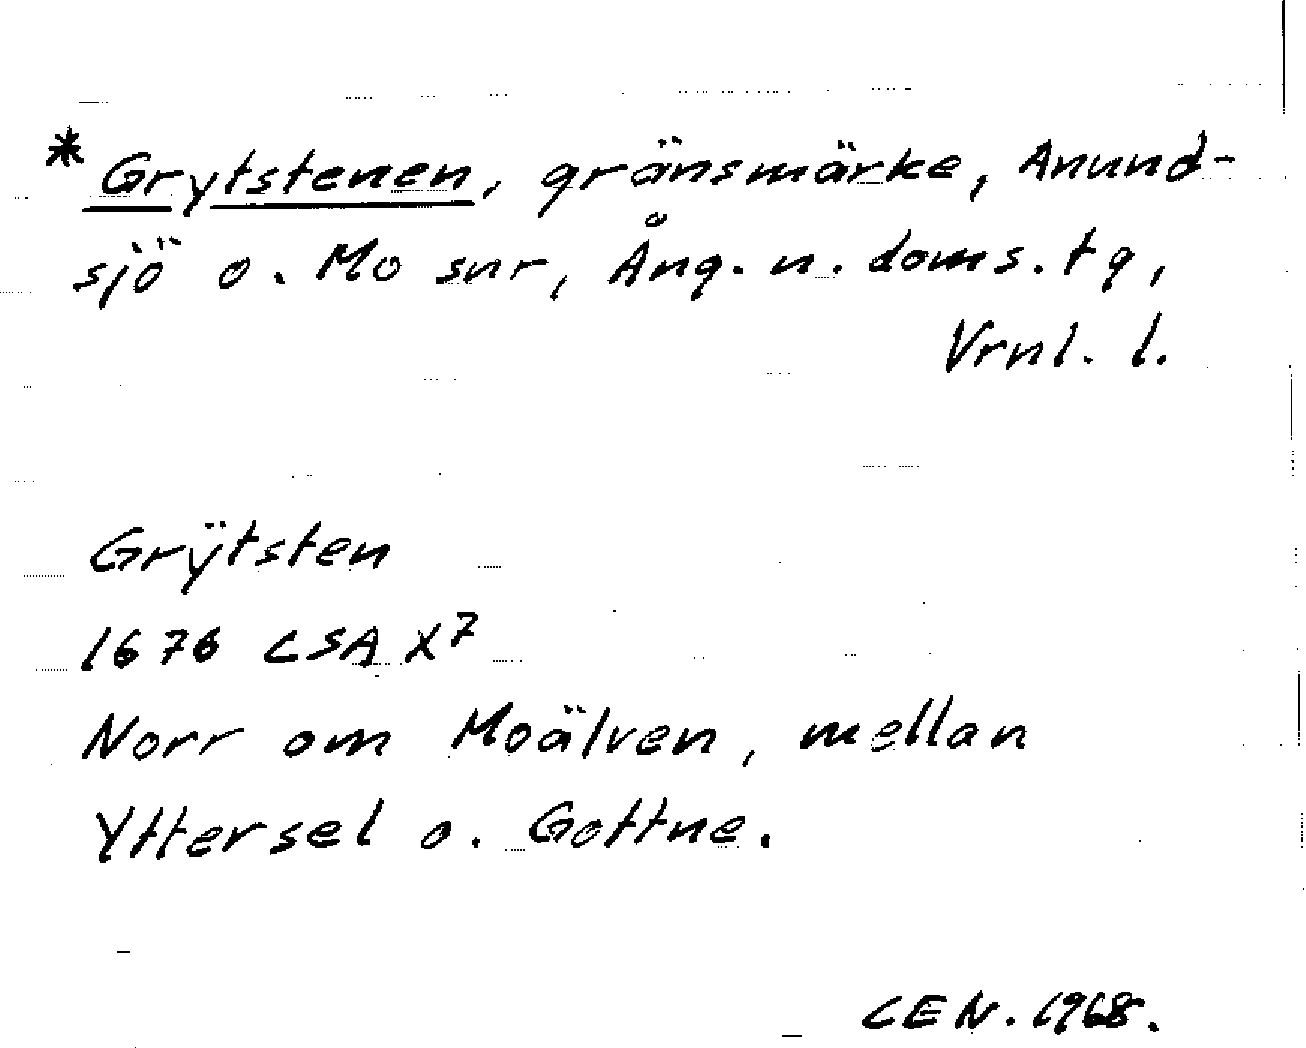 *Grytstenen, gränsmärke, Anund-
sjö o. Mo snr, Ång. n. doms. tg,
Vrnl. l.
Grÿtsten
1676 LSA X7
Norr om Moälven, mellan
Yttersel o. Gottne.
CEN. 1968.